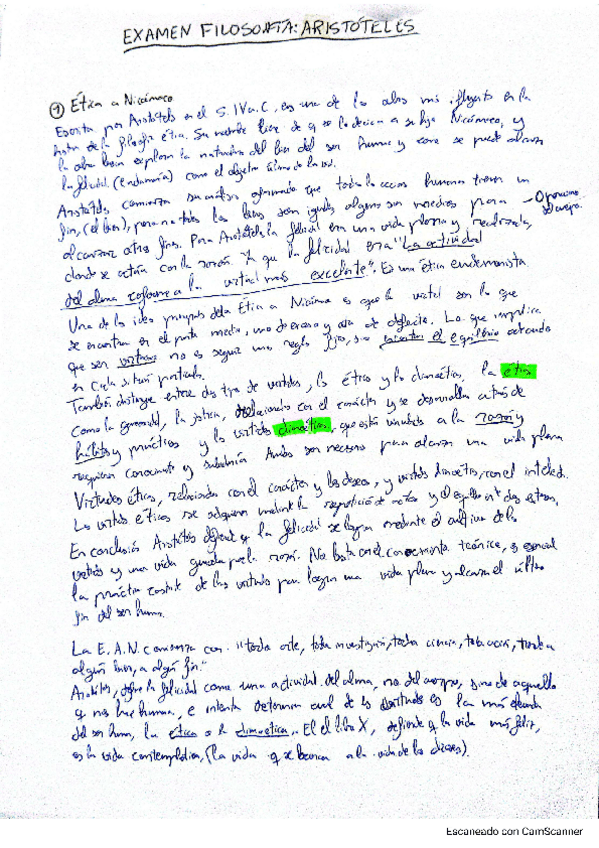 EXAMEN FILOSOFÍA: ARISTÓTELES
① Ética a Nicómaco
Escrita por Aristóteles en el S. IV a.C, es una de las obras más influyente en la
de la filosofía ética. Su nombre de q se lo dedica a su hijo Nicómaco, y
la obra explora la naturaleza del bien del ser humano y como se puede alcanzar
la felicidad (eudaimonía) como el objetivo último de la vida.
Aristóteles, comienza su análisis afirmando que todas las acciones humanas tienen un
fin, (el bien), pero no todos los bienes son iguales algunos son medios para
alcanzar otros fines. Para Aristóteles la felicidad era una vida plena y realizada,
donde se actúa con la razón. Ya que la felicidad era "La actividad
del alma conforme a la virtud más excelente". Es una ética eudemonista.
Una de las ideas de la Ética a Nicómaco es que la virtud son la que
se encuentra en el punto medio, uno de exceso y otro de defecto. Lo que implica
que ser virtuoso no es seguir una regla fija, sino el equilibrio actuando
en cada situación particular.
También distingue entre dos tipo de virtudes, las éticas y las dianoéticas, la ética
como la generosidad, la justicia, relacionadas con el carácter y se desarrolla a través de
hábitos y prácticas y las virtudes dianoéticas, que está vinculada a la razón y
requieren conocimiento y sabiduría. Ambas son necesarias para alcanzar una vida plena
Virtudes éticas, relacionadas con el carácter y los deseos, y virtudes dianoéticas, con el intelecto.
Las virtudes éticas se adquieren mediante la repetición de actos y el equilibrio entre dos extremos.
En conclusión Aristóteles defiende q la felicidad se logra mediante el cultivo de las
virtudes y una vida guiada por la razón. No basta con el conocimiento teórico, es esencial
la práctica constante de las virtudes para lograr una vida plena y alcanzar el último
fin del ser humano.
La E.A.N. comienza con "toda arte, toda investigación, toda ciencia, toda acción, tiende a
algún bien, a algún fin."
Aristóteles, define la felicidad como una actividad del alma, no del cuerpo, sino de aquello
q nos hace humano, e intenta determinar cual de las es la más elevada
del ser humano, la ética o la dianoética. En el libro X, defiende q la vida más feliz,
es la vida contemplativa, (la vida q se acerca a la vida de los dioses).
Escaneado con CamScanner